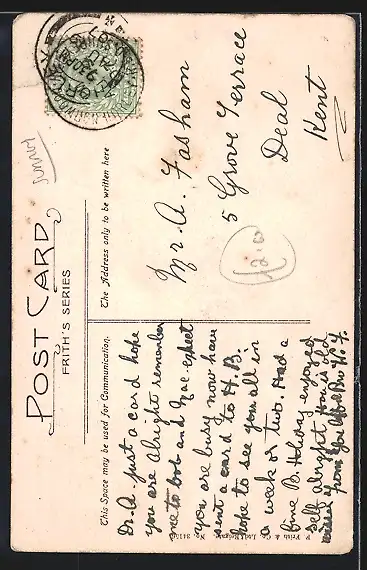 POST CARD
FRITH'S SERIES
This Space may be used for Communication.
The Address only to be written here
Dr. A. just a card hope
you are alright remember
me to bob and Mae expect
you are busy now have
sent a card to H. B.
hope to see you all in
a week or two. Had a
fine B. Holiday enjoyed
self alright How is old
from
Mr. A. Fasham
5 Grove Terrace
Deal
Kent
12.0